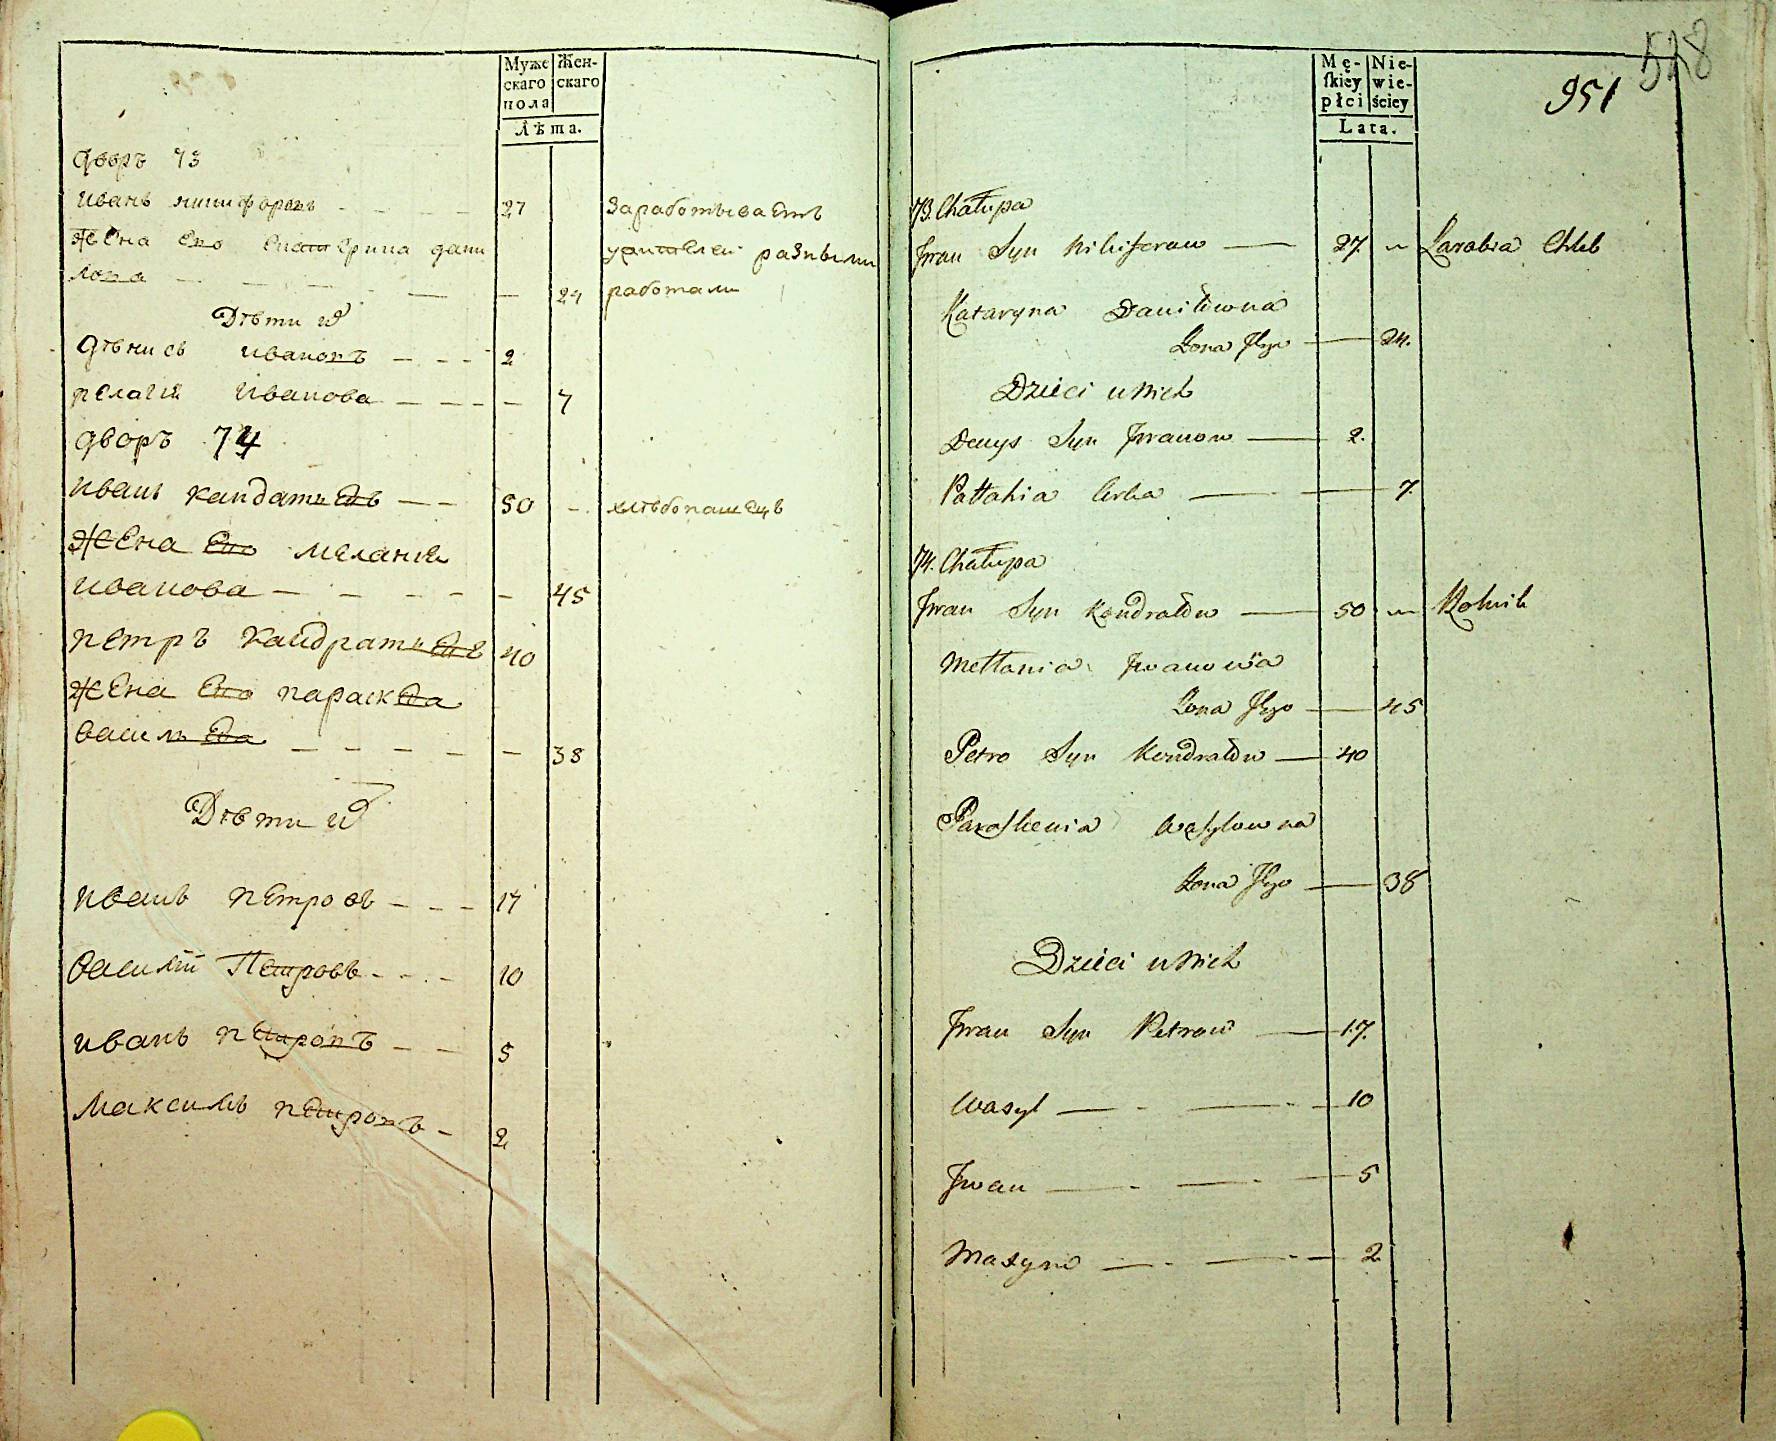 Муже
скаго
пола
Жен-
скаго
Лѣта.
дворъ 73
иванъ никифоровъ 27 заработываетъ
жена его екатерина дани
лова 24
работами
Дѣти их
дѣнисъ ивановъ 2
пелагия иванова 7
дворъ 74
иванъ кандратьевъ 50 хлѣбопашецъ
жена его мелания
иванова 45
петръ кандратьевъ 40
жена его параскева
васильева 38
Дѣти их
иванъ петровъ 17
василій Петровъ 10
иванъ петровъ 5
максимъ петровъ 2
528
951
Mę-
skiey
płci
Nie-
wie-
ściey
Lata.
73. Chałupa
Jwan Syn Nikiforow 27. Zarabia Chleb
Kataryna Daniłowna
Zona Jego 24.
Dzieci u Nich
Denys Syn Jwanow 2.
Pałłahia 7.
74. Chałupa
Jwan Syn Kondratów 50 Rolnik
Mełłania Jwanowa
Zona Jego 45
Petro Syn Kondratów 40
Paraskewia Wasylowna
Zona Jego 38
Dzieci u Nich
Jwan Syn Petrow 17.
Wasyl 10
Jwan 5
Maxym 2